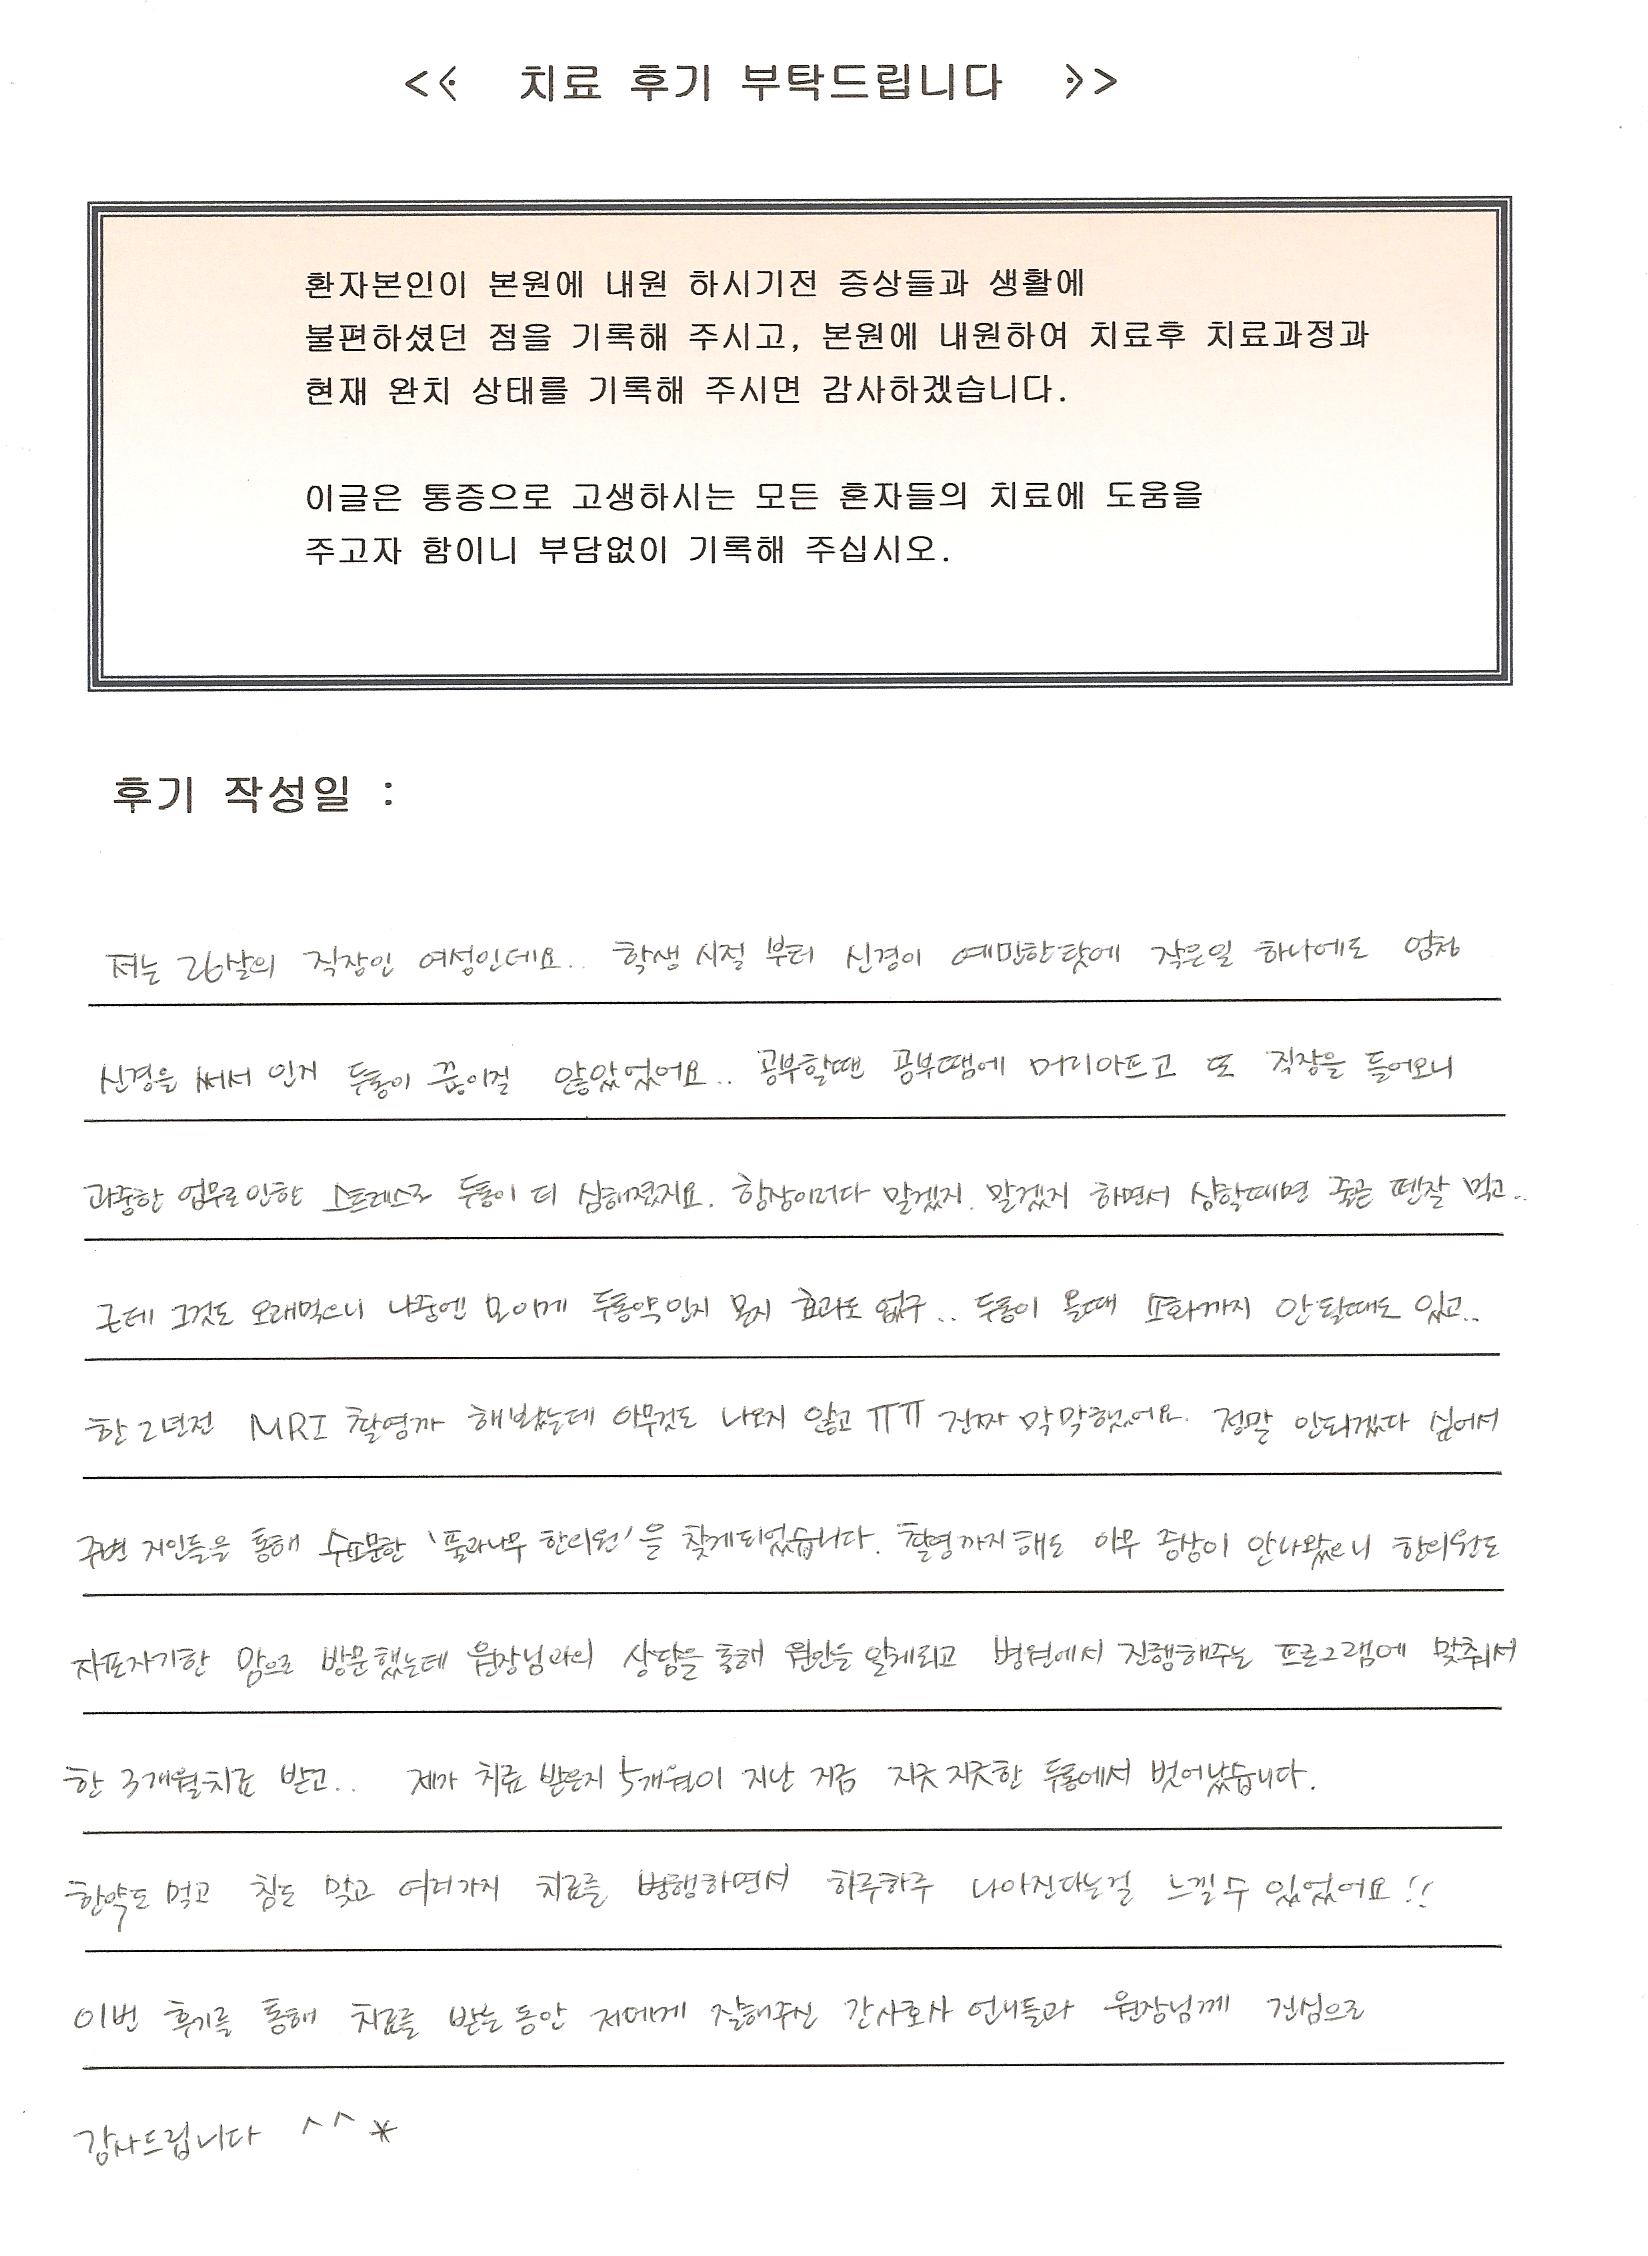 << 치료 후기 부탁드립니다 >>
환자본인이 본원에 내원 하시기전 증상들과 생활에
불편하셨던 점을 기록해 주시고, 본원에 내원하여 치료후 치료과정과
현재 완치 상태를 기록해 주시면 감사하겠습니다.
이글은 통증으로 고생하시는 모든 혼자들의 치료에 도움을
주고자 함이니 부담없이 기록해 주십시오.
후기 작성일 :
저는 26살의 직장인 여성인데요.. 학생 시절 부터 신경이 예민한탓에 작은일 하나에도 엄청
신경을 써서 인지 두통이 끊이질 않았었어요.. 공부할땐 공부땜에 머리아프고 또 직장을 들어오니
과중한 업무로인한 스트레스로 두통이 더 심해졌지요. 항상이러다 말겠지. 말겠지 하면서 심할때면 줄곧 펜잘 먹고..
근데 그것도 오래먹으니 나중엔 모 이게 두통약인지 몬지 효과도 없구.. 두통이 올때 소화까지 안될때도 있고..
한 2년전 MRI 촬영까 해봤는데 아무것도 나오지 않고 ㅠㅠ 진짜 막막했어요. 정말 안되겠다 싶어서
주변 지인들을 통해 수소문한 '풀과나무 한의원'을 찾게되었습니다. 촬영까지해도 아무 증상이 안나왔으니 한의원도
자포자기한 맘으로 방문했는데 원장님과의 상담을 통해 원인을 알게되고 병원에서 진행해주는 프로그램에 맞춰서
한 3개월치료 받고.. 제가 치료 받은지 5개월이 지난 지금 지긋지긋한 두통에서 벗어났습니다.
한약도 먹고 침도 맞고 여러가지 치료를 병행하면서 하루하루 나아진다는걸 느낄수 있었어요!!
이번 후기를 통해 치료를 받는동안 저에게 잘해주신 간호사 언니들과 원장님께 진심으로
감사드립니다 ^^*